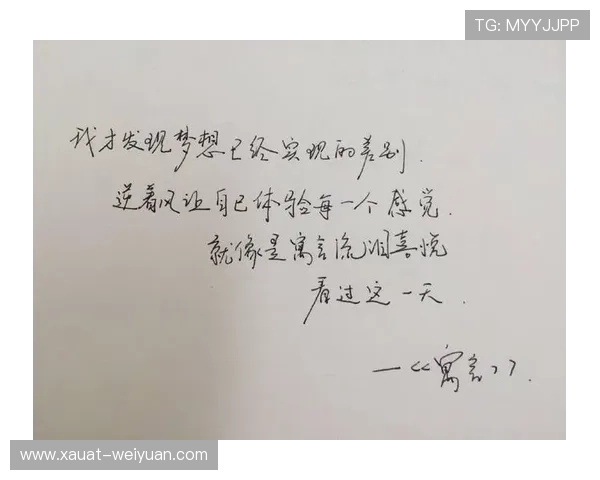 TG: MYYJJPP
我才发现梦想已经实现的差别.
逆着风让自己体验每一个感觉.
就像是寓言流泪喜悦
看过这一天.
—<<寓言>>.
www.xauat-weiyuan.com